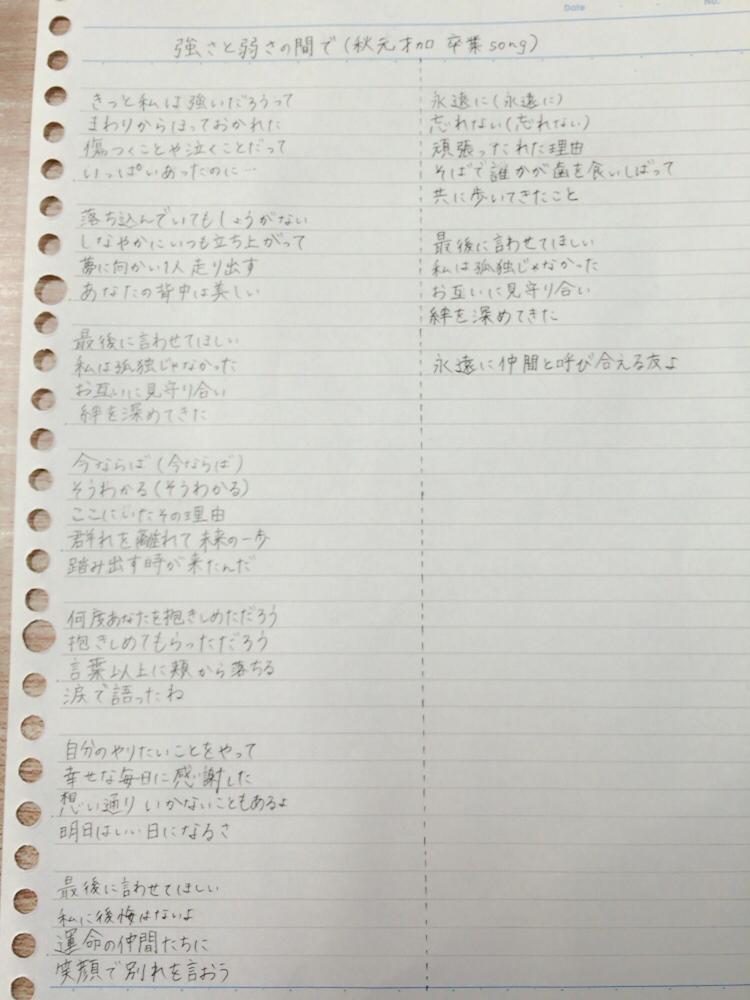 Date
No.
強さと弱さの間で(秋元才加 卒業song)
きっと私は強いだろうって
まわりからほっておかれた
傷つくことや泣くことだって
いっぱいあったのに…
落ち込んでいてもしょうがない
しなやかにいつも立ち上がって
夢に向かい1人 走り出す
あなたの背中は美しい
最後に言わせてほしい
私は孤独じゃなかった
お互いに見守り合い
絆を深めてきた
今ならば(今ならば)
そうわかる(そうわかる)
ここにいたその理由
群れを離れて 未来の一歩
踏み出す時が来たんだ
何度あなたを抱きしめただろう
抱きしめてもらっただろう
言葉以上に頬から落ちる
涙で語ったね
自分のやりたいことをやって
幸せな毎日に感謝した
想い通り いかないこともあるよ
明日はいい日になるさ
最後に言わせてほしい
私に後悔はないよ
運命の仲間たちに
笑顔で別れを言おう
永遠に(永遠に)
忘れない(忘れない)
頑張ったれた理由
そばで誰かが歯を食いしばって
共に歩いてきたこと
最後に言わせてほしい
私は孤独じゃなかった
お互いに見守り合い
絆を深めてきた
永遠に仲間と呼び合える友よ